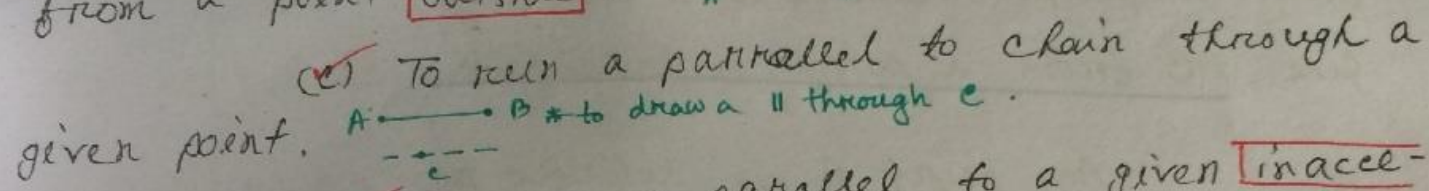 from a point
(c) To run a parrallel to chain through a
given point. A B * to draw a || through c.
c
parallel to a given inacce-